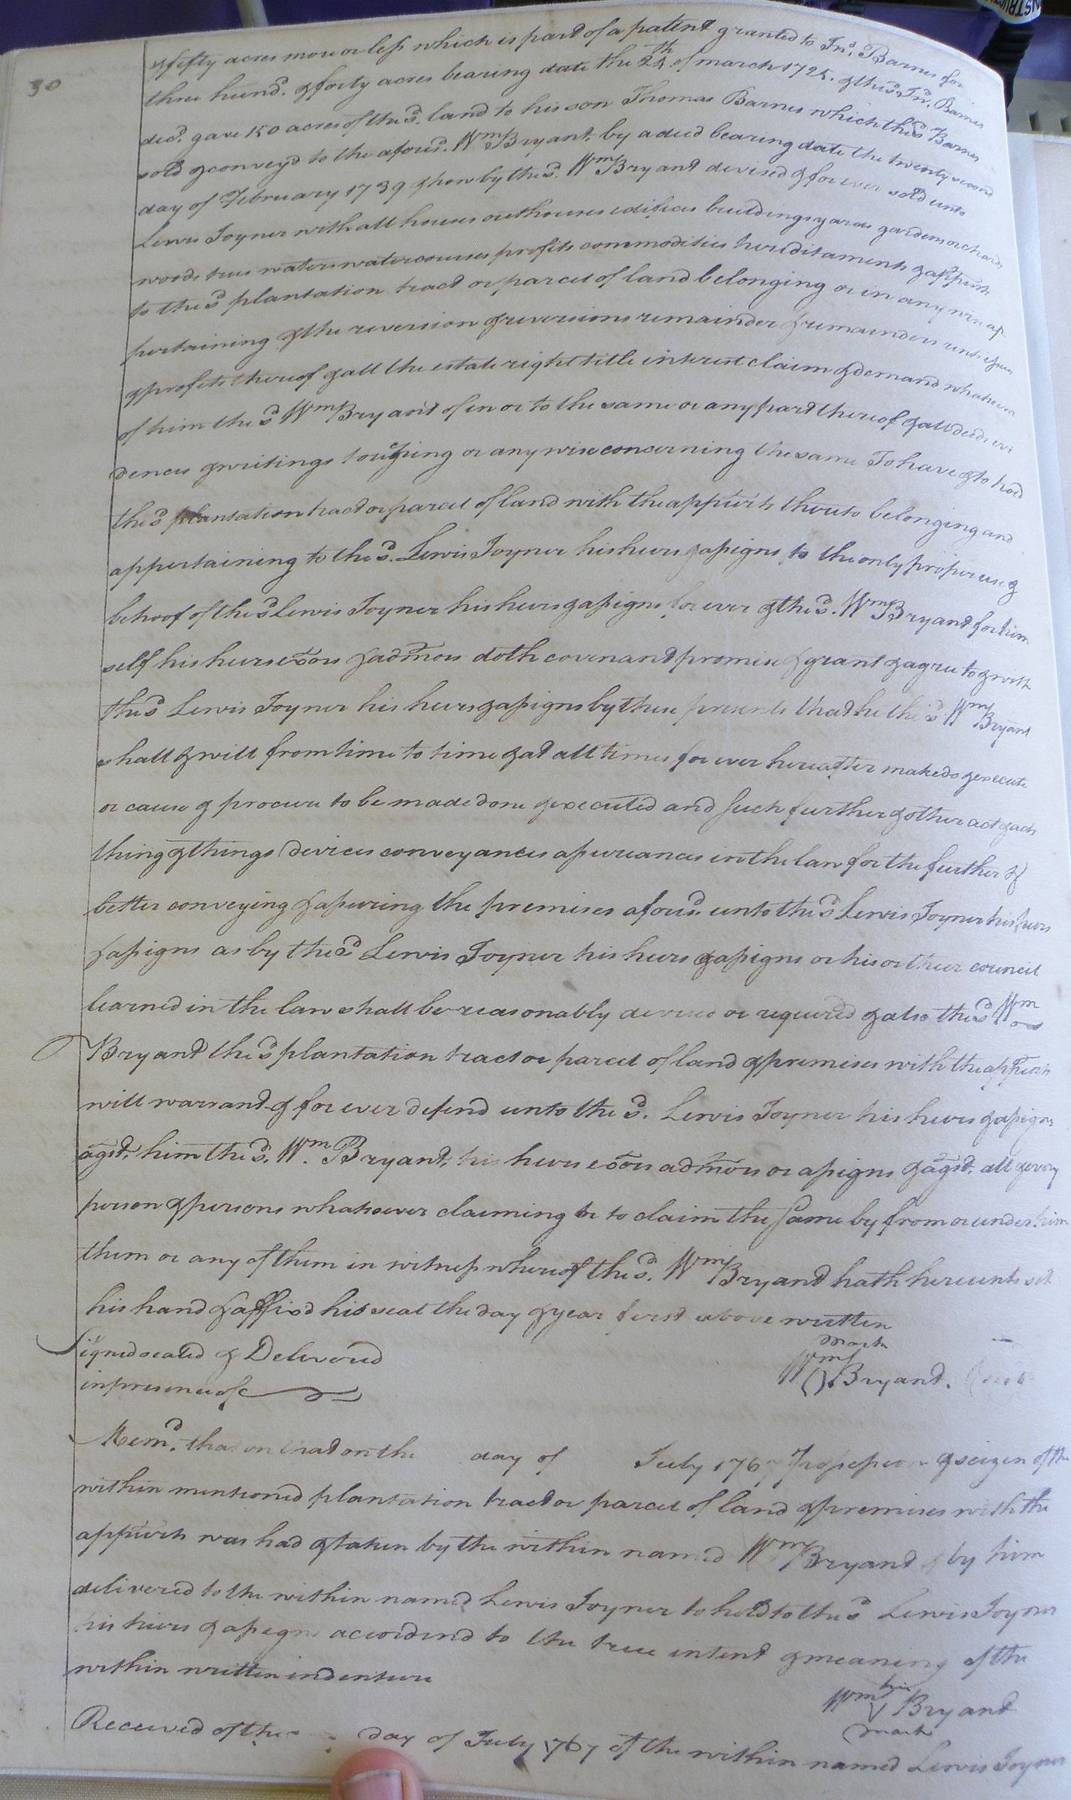 30
& fifty acres more or less which is part of a patent granted to Jno. Barnes for
three hund. & forty acres bearing date the 24th of march 1724. & the sd. Jno. Barnes
decd. gave 150 acres of the sd. land to his son Thomas Barnes which the sd Barnes
sold & convey'd to the afores. Wm Bryant by a deed bearing date the twenty second
day of February 1739 & how by the sd. Wm Bryant devised & for ever sold unto
Lewis Joyner with all houses outhouses edifices buildings yards gardens orchards
woods trees waters watercourses profits commodities hereditaments & appurts
to the sd plantation tract or parcel of land belonging or in any wise ap
pertaining & the reversion & reversions remainder & remainders rents issues
& profits thereof & all the estate right title interest claim & demand whatsoever
of him the sd Wm Bryant of in or to the same or any part thereof & all deeds evi
dences & writings touching or any wise concerning the same To have & to hold
the sd plantation tract or parcel of land with the appurts thereto belonging and
appertaining to the sd. Lewis Joyner his heirs & assigns to the only proper use &
behoof of the sd Lewis Joyner his heirs & assigns for ever & the sd. Wm Bryant for him
self his heirs exors & admors doth covenant promise & grant & agree to & with
the sd Lewis Joyner his heirs & assigns by these presents that he the sd Wm Bryant
shall & will from time to time & at all times for ever hereafter make do & execute
or cause & procure to be made done & executed and such further & other act & acts
thing & things devices conveyances assureances in the law for the further &
better conveying & assureing the premises aforesd. unto the sd Lewis Joyner his heirs
& assigns as by the sd Lewis Joyner his heirs & assigns or his or their council
learned in the law shall be reasonably devised or required & also the sd Wm
Bryant the sd plantation tract or parcel of land & premises with the appurts
will warrant & for ever defend unto the sd. Lewis Joyner his heirs & assigns
agst. him the sd. Wm Bryant, his heirs exors admors or assigns & agst. all & every
person & persons whatsoever claiming or to claim the same by from or under him
them or any of them in witness whereof the sd. Wm Bryant hath hereunto set
his hand & affixd his seal the day & year first above written
Signed sealed & Delivered
in presence of
mark
Wm Bryant. (seal
Memd. that on the day of July 1767 Possession & seizen of the
within mentioned plantation tract or parcel of land & premises with the
appurts was had & taken by the within named Wm Bryant & by him
delivered to the within named Lewis Joyner to hold to the sd Lewis Joyner
his heirs & assigns accordind to the true intent & meaning of the
within written indenture
his
Wm V Bryant
mark
Received of the day of July 1767 of the within named Lewis Joyner